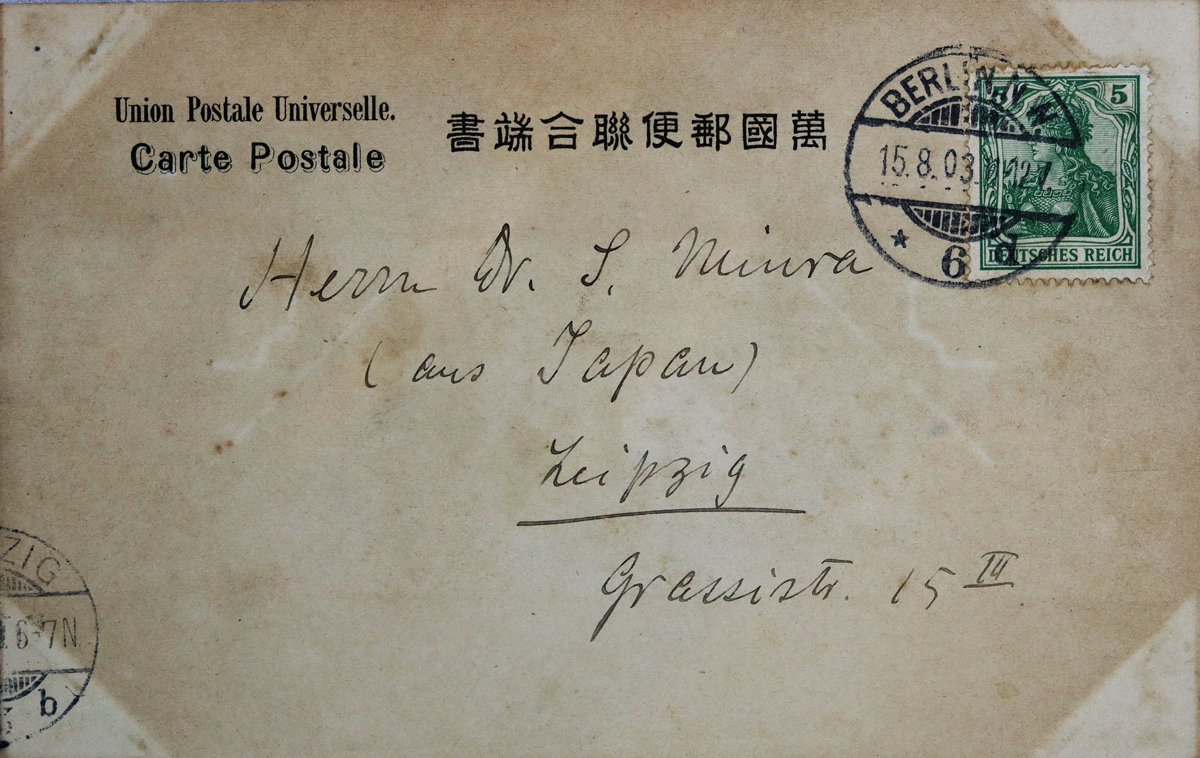 Union Postale Universelle.
Carte Postale
萬國郵便聯合端書
BERLIN N.W.
15.8.03. 11-12 V.
* 6 d
5
DEUTSCHES REICH
Herrn Dr. S. Miura
(aus Japan)
Leipzig
Grassistr. 15 III
ZIG
6-7N
b